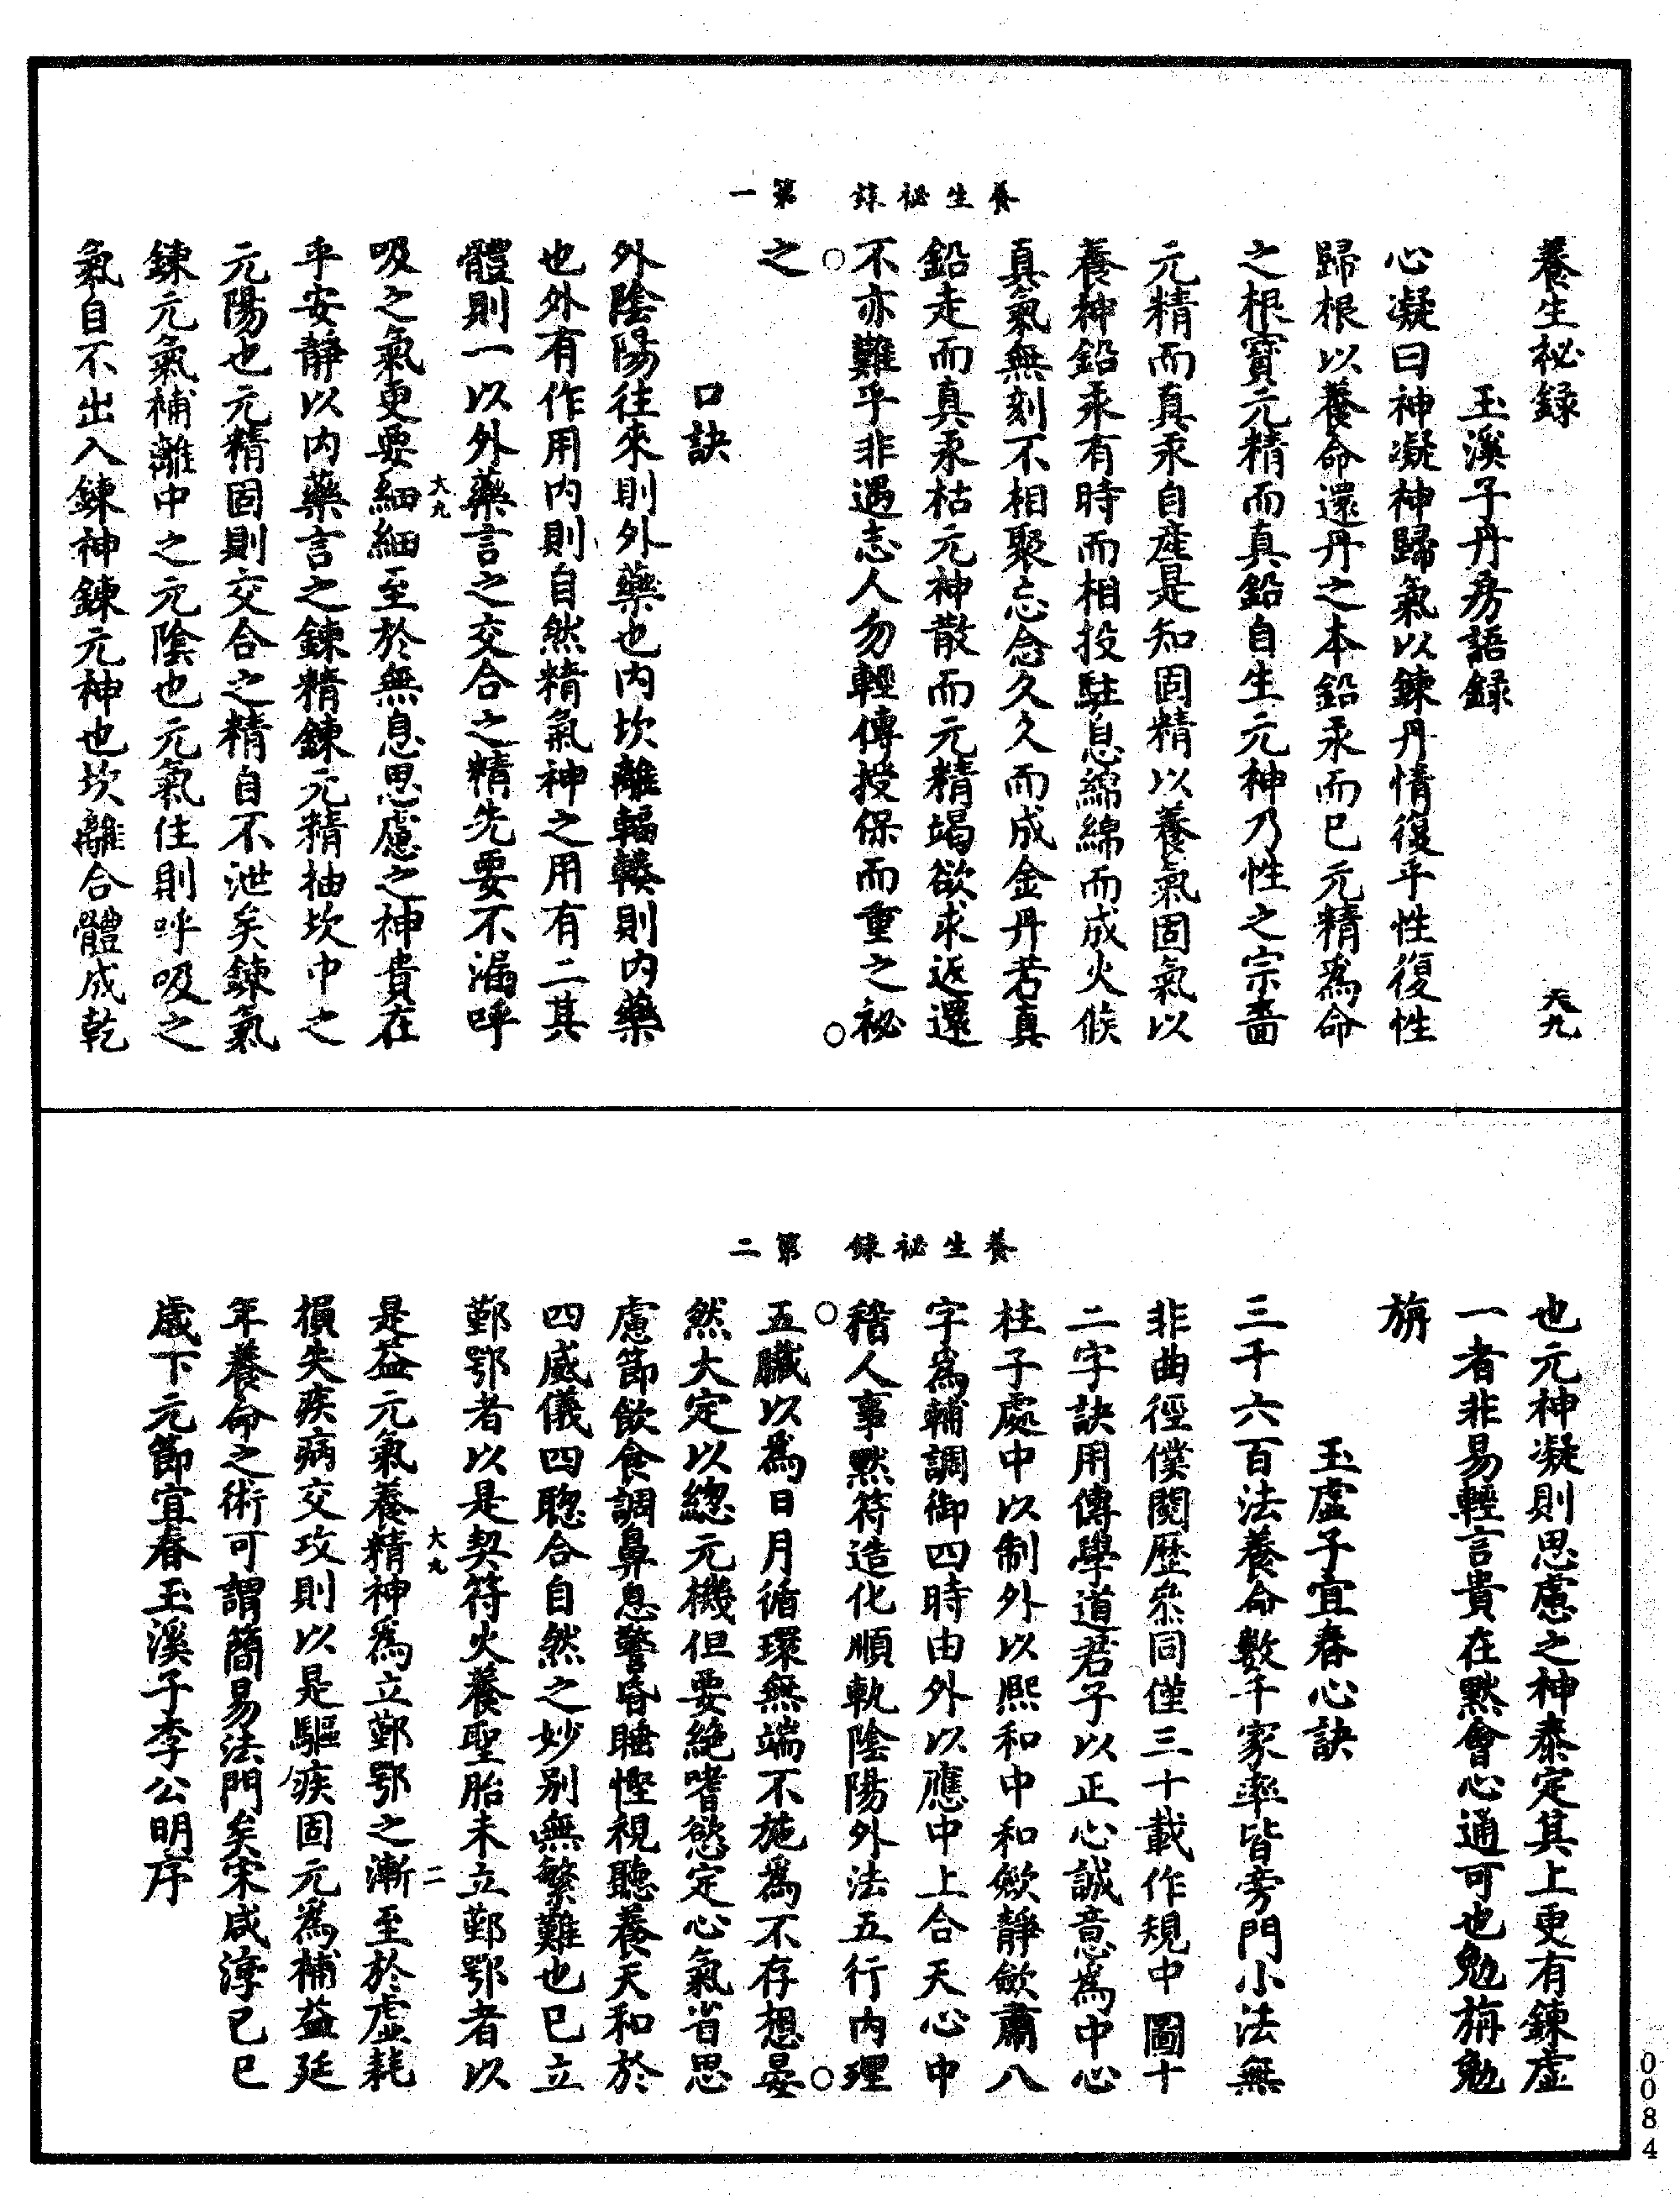 養生祕錄　大九
玉溪子丹房語錄
心凝曰神凝神歸氣以鍊丹情復乎性復性
歸根以養命還丹之本鉛汞而已元精為命
之根寶元精而真鉛自生元神乃性之宗嗇
元精而真汞自產是知固精以養氣固氣以
養神鉛汞有時而相投駐息綿綿而成火候
真氣無刻不相聚忘念久久而成金丹若真
鉛走而真汞枯元神散而元精竭欲求返還
不亦難乎非遇志人勿輕傳授保而重之祕
之
養生祕錄　第一
口訣
外陰陽往來則外藥也內坎離輻輳則內藥
也外有作用內則自然精氣神之用有二其
體則一以外藥言之交合之精先要不漏呼
大九
吸之氣更要細細至於無息思慮之神貴在
乎安靜以內藥言之鍊精鍊元精抽坎中之
元陽也元精固則交合之精自不泄矣鍊氣
鍊元氣補離中之元陰也元氣住則呼吸之
氣自不出入鍊神鍊元神也坎離合體成乾
也元神凝則思慮之神泰定其上更有鍊虛
一者非易輕言貴在默會心通可也勉旃勉
旃
玉虛子宜春心訣
三千六百法養命數千家率皆旁門小法無
非曲徑僕閱歷叅同僅三十載作規中圖十
二字訣用傳學道君子以正心誠意為中心
柱子處中以制外以熙和中和歛靜歛肅八
字為輔調御四時由外以應中上合天心中
稽人事默符造化順軌陰陽外法五行內理
養生祕錄　第二
五臟以為日月循環無端不施為不存想晏
然大定以緫元機但要絕嗜慾定心氣省思
慮節飲食調鼻息警昏睡慳視聽養天和於
四威儀四聦合自然之妙別無繁難也已立
鄞鄂者以是契符火養聖胎未立鄞鄂者以
大九　二
是益元氣養精神為立鄞鄂之漸至於虛耗
損失疾病交攻則以是驅疾固元為補益延
年養命之術可謂簡易法門矣宋咸淳己巳
歲下元節宜春玉溪子李公明序
0084